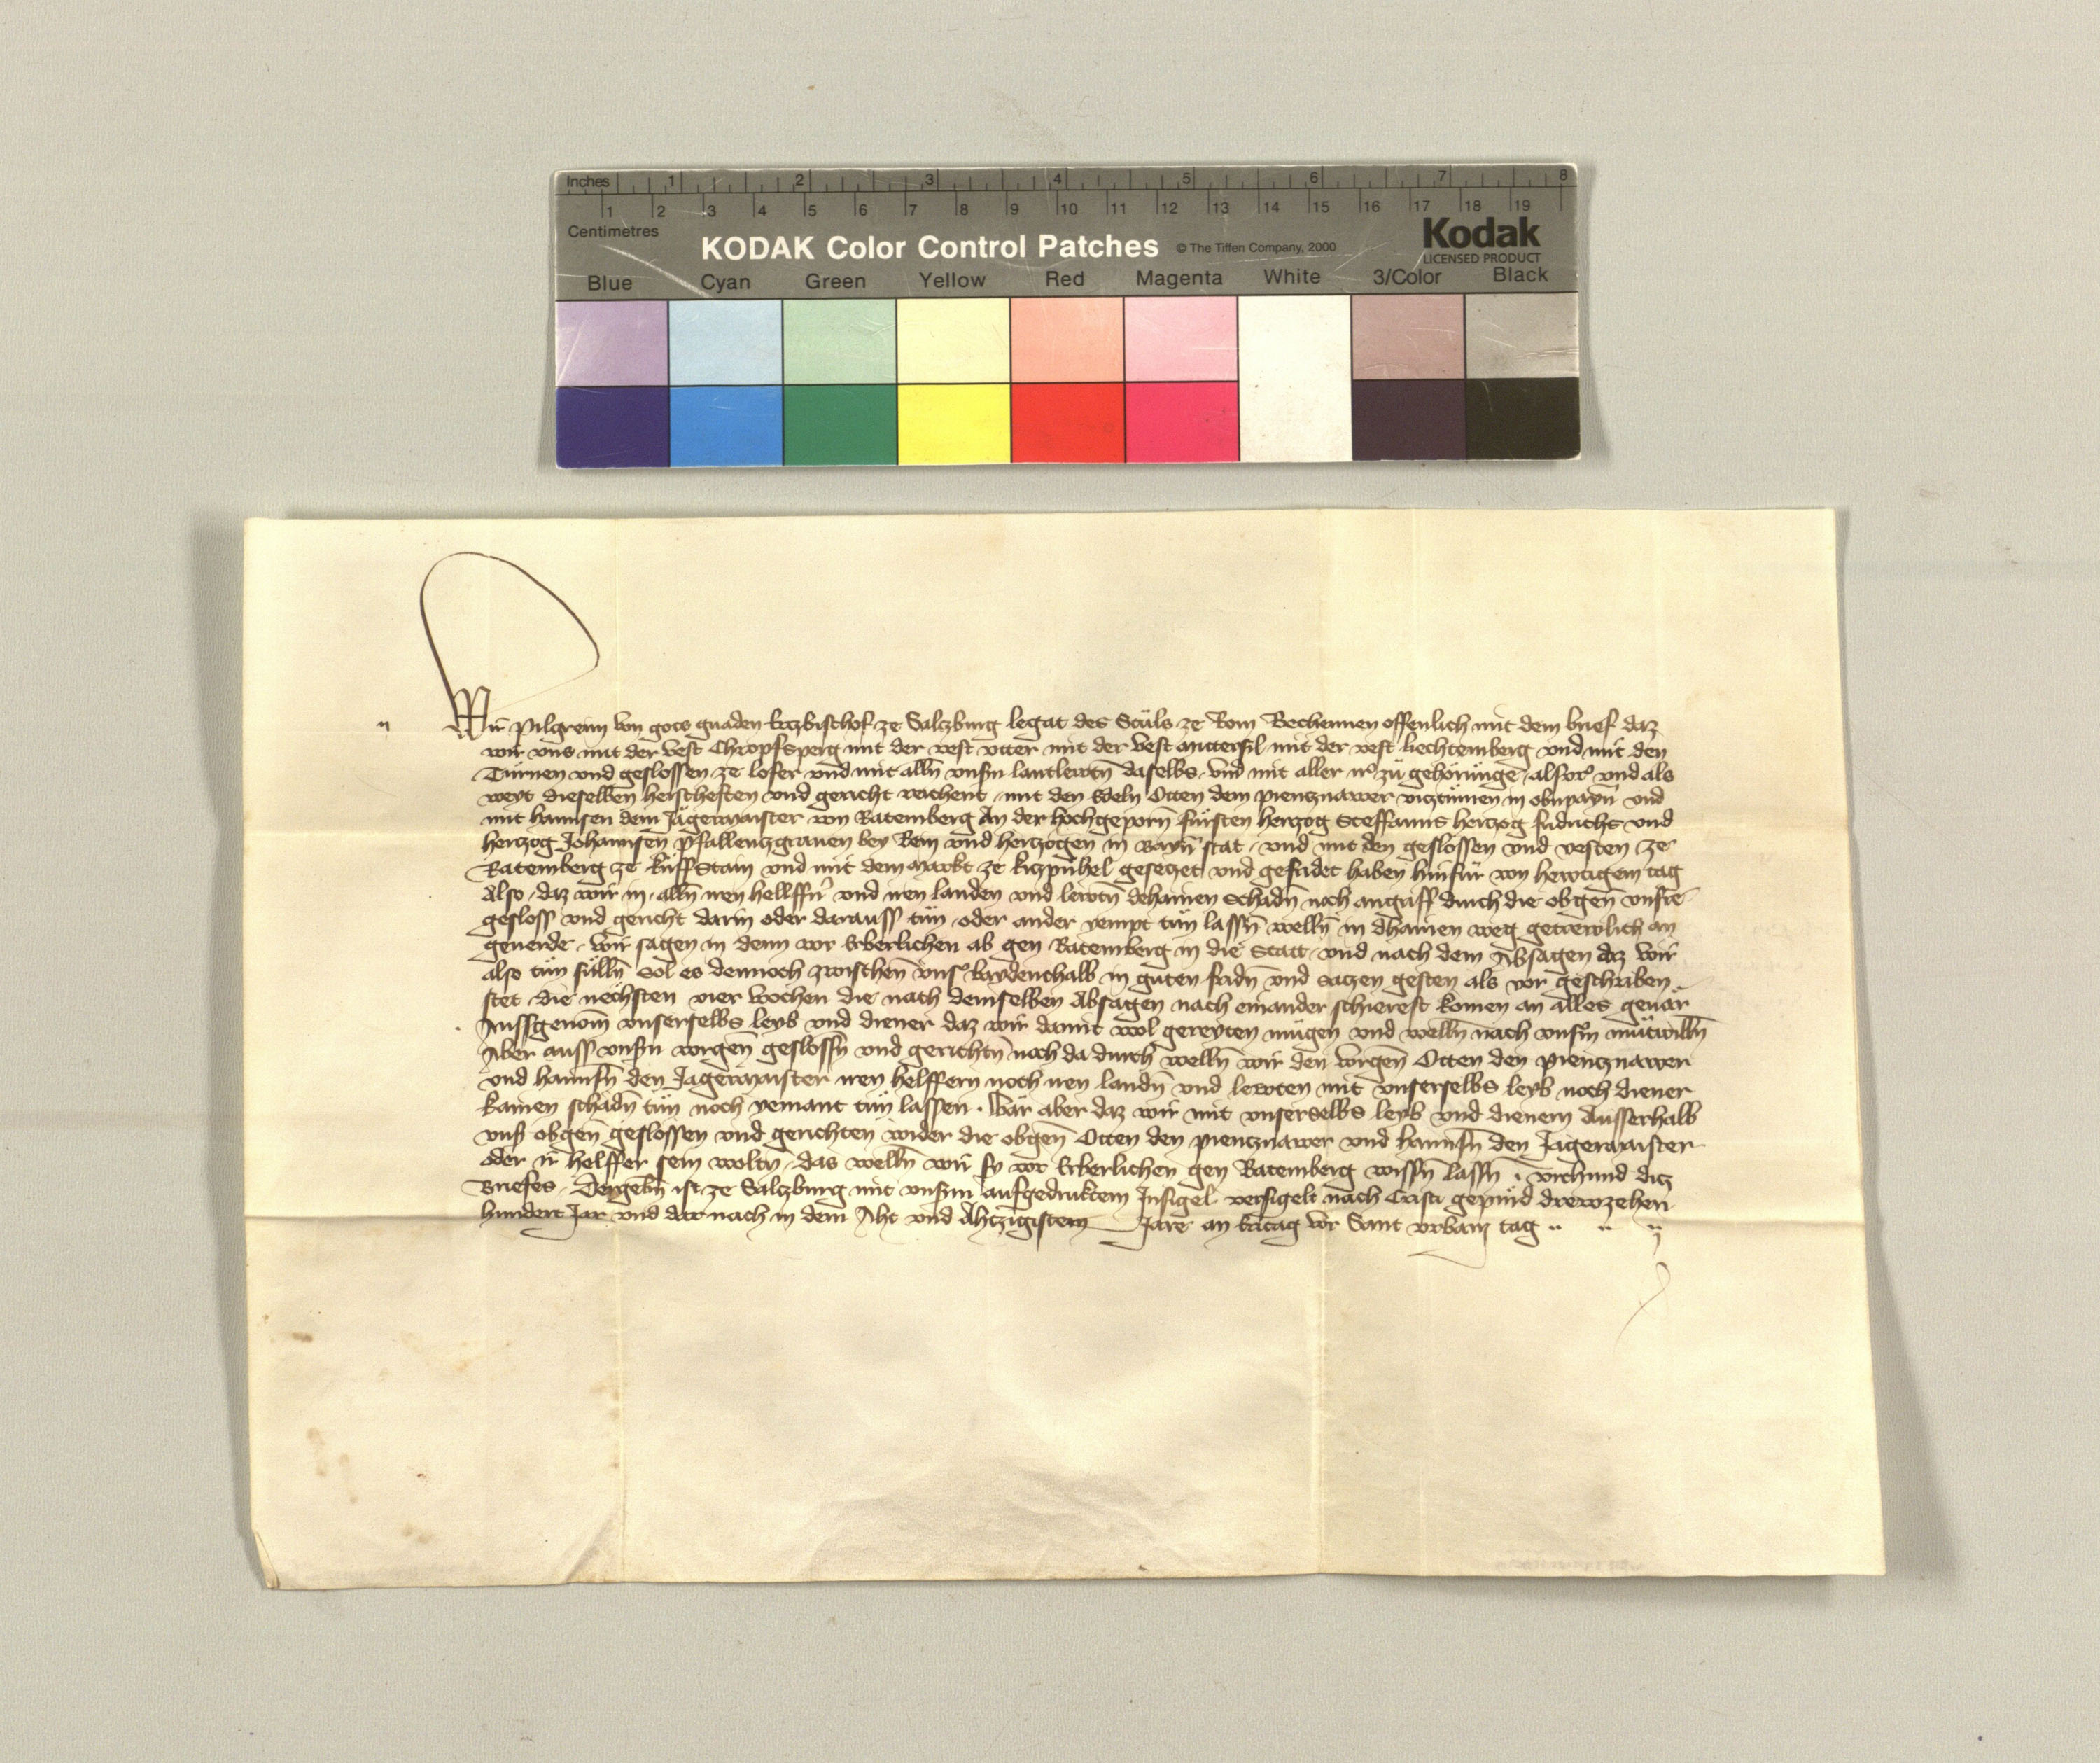 Inches 1 2 3 4 5 6 7 8
1 2 3 4 5 6 7 8 9 10 11 12 13 14 15 16 17 18 19
Centimetres
KODAK Color Control Patches © The Tiffen Company, 2000 Kodak
LICENSED PRODUCT
Blue Cyan Green Yellow Red Magenta White 3/Color Black
Wir Pilgreim von gots gnaden Erczbischof ze Salczburg legat des Stůls ze Rom Bechennen offenlich mit dem brief daz
wir vns mit der vest Chropfsperg mit der vest vtter mit der vest mittersil mit der vest liechtemberg vnd mit den
Türnen vnd geslossen ze lofer vnd mit alln̄ vnsn̄ lantlewtn̄ daselbs vnd mit aller ir zů gehörunge, alsver vnd als
weyt dieselben herscheften vnd gericht raichent, mit den Edeln Otten dem pienczn̄awer vicztümen in obnpayn̄ vnd
mit hannsen dem Jägermaister von Ratemberg An der hochgeporn fürsten herczog Steffanns herczog fridrichs vnd
herczog Johannsen pfallenczgrauen bey Rein vnd herczogen in Bayrn̄ stat, vnd mit den geslossen vnd vesten ze
Ratemberg ze kuffstain vnd mit dem markt ze kiczpühel geseczet vnd gefridet haben hinfür von hewtigem tag
Also, daz wir in, alln̄ iren hellffn̄ vnd iren landen vnd lewtn̄ dehainen Schadn̄ noch angriff durch die obgen̄ vnsre
gesloss vnd gericht darin oder darauss tůn, oder ander yempt tůn lassn̄ welln̄ in dhainen weg getrewlich an
geuerde, wir sagen in denn vor Erberlichen ab gen Ratemberg in die Statt, vnd nach dem Absagen daz wir
also tůn sülln̄ Sol es dennoch zwischen vnser baydenthalb in gůten fridn̄ vnd saczen gesten als vor geschriben
stet, die nechsten vier wochen die nach demselben Absagen nach einander schierest komen an alles geuär
Aussgenom̄ vnserselbs leyb vnd diener daz wir damit wol gereyten mügen vnd welln̄ nach vnsm̄ můtwilln̄
Aber auss vnsn̄ vorgen̄ geslossn̄ vnd gerichtn̄ noch da durch welln̄ wir den vorgen̄ Otten den pienczn̄awer
vnd hannsn̄ den Jägermaister iren helffern noch iren landn̄ vnd lewten mit vnserselbs leyb noch diener
kainen schadn̄ tůn noch yemant tůn lassen. Wär aber daz wir mit vnserselbs leyb vnd dienern Ausserhalb
vnsr obgen̄ geslossen vnd gerichten wider die obgen̄ Otten den pienczn̄awer vnd hannsn̄ den Jägermaister
oder ir helffer sein woltn̄, das welln̄ wir sy vor Erberlichen gen Ratemberg wissn̄ lassn̄. vrchund dicz
Briefes, Der gebn̄ ist ze Salczburg mit vnsm̄ aufgedruktem Insigel versigelt nach Cristi gepůrd drewzehen
hundert Jar vnd dar nach in dem Aht vnd Ahtzigistem Jare an Eritag vor Sant vrbans tag